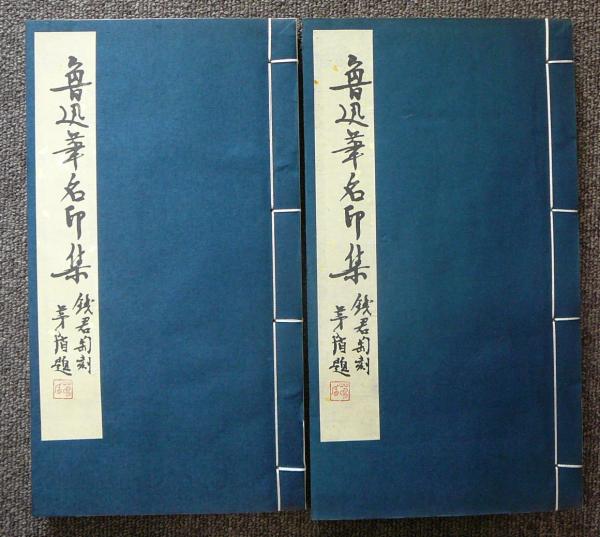 魯迅筆名印集
錢君匋刻
茅盾題
魯迅筆名印集
錢君匋刻
茅盾題